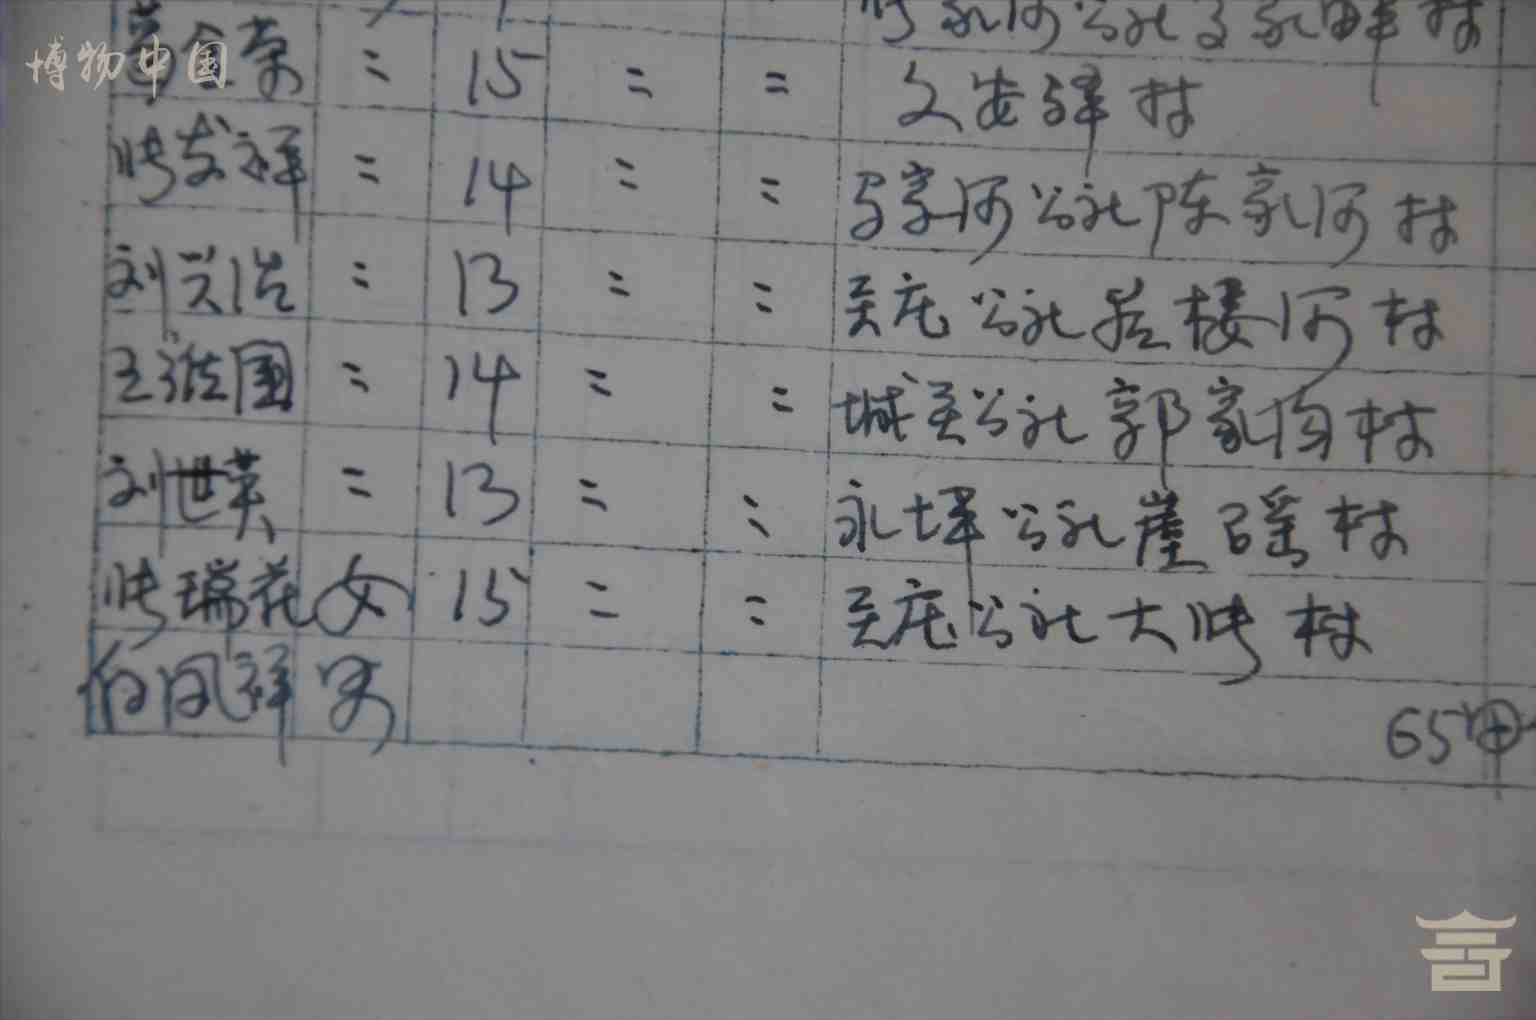 博物中国
金荣 = 15 = = 文安驿村
张发祥 = 14 = = 马家河公社陈家河村
刘兴浩 = 13 = = 关庄公社后楼河村
王维国 = 14 = = 城关公社郭家沟村
刘世英 = 13 = = 永坪公社崖窑村
张瑞花 女 15 = = 关庄公社大张村
白凤祥 男
65中